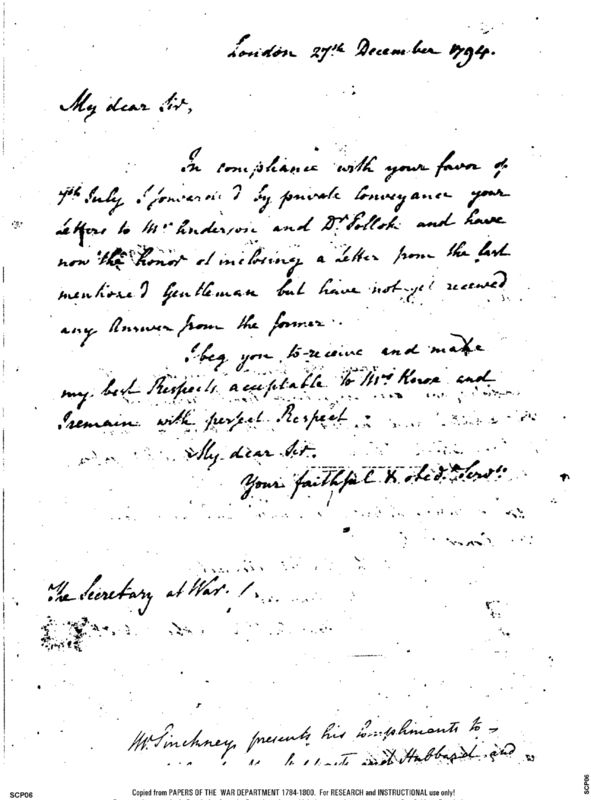 London 27th December 1794.
My dear Sir,
In compliance with your favor of
7th July I forwarded by private Conveyance your
Letters to Mr. Anderson and Dr. Tollok and have
now the honor of inclosing a Letter from the last
mentioned Gentleman but have not yet received
any Answer from the former.
I beg you to receive and make
my best Respects acceptable to Mrs. Knox and
I remain with perfect Respect.
My dear Sir.
Your faithful & obedt. Servt.
The Secretary at War.
Mr. Pinckney presents his Compliments to
and Hubbard and
SCP06
Copied from PAPERS OF THE WAR DEPARTMENT 1784-1800. For RESEARCH and INSTRUCTIONAL use only!
SCP06